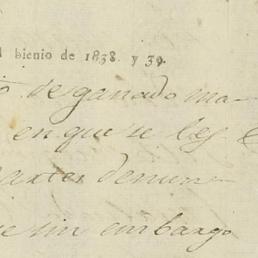 bienio de 1838. y 39.
de ganado ma-
en que se les
partes denun-
sin embargo